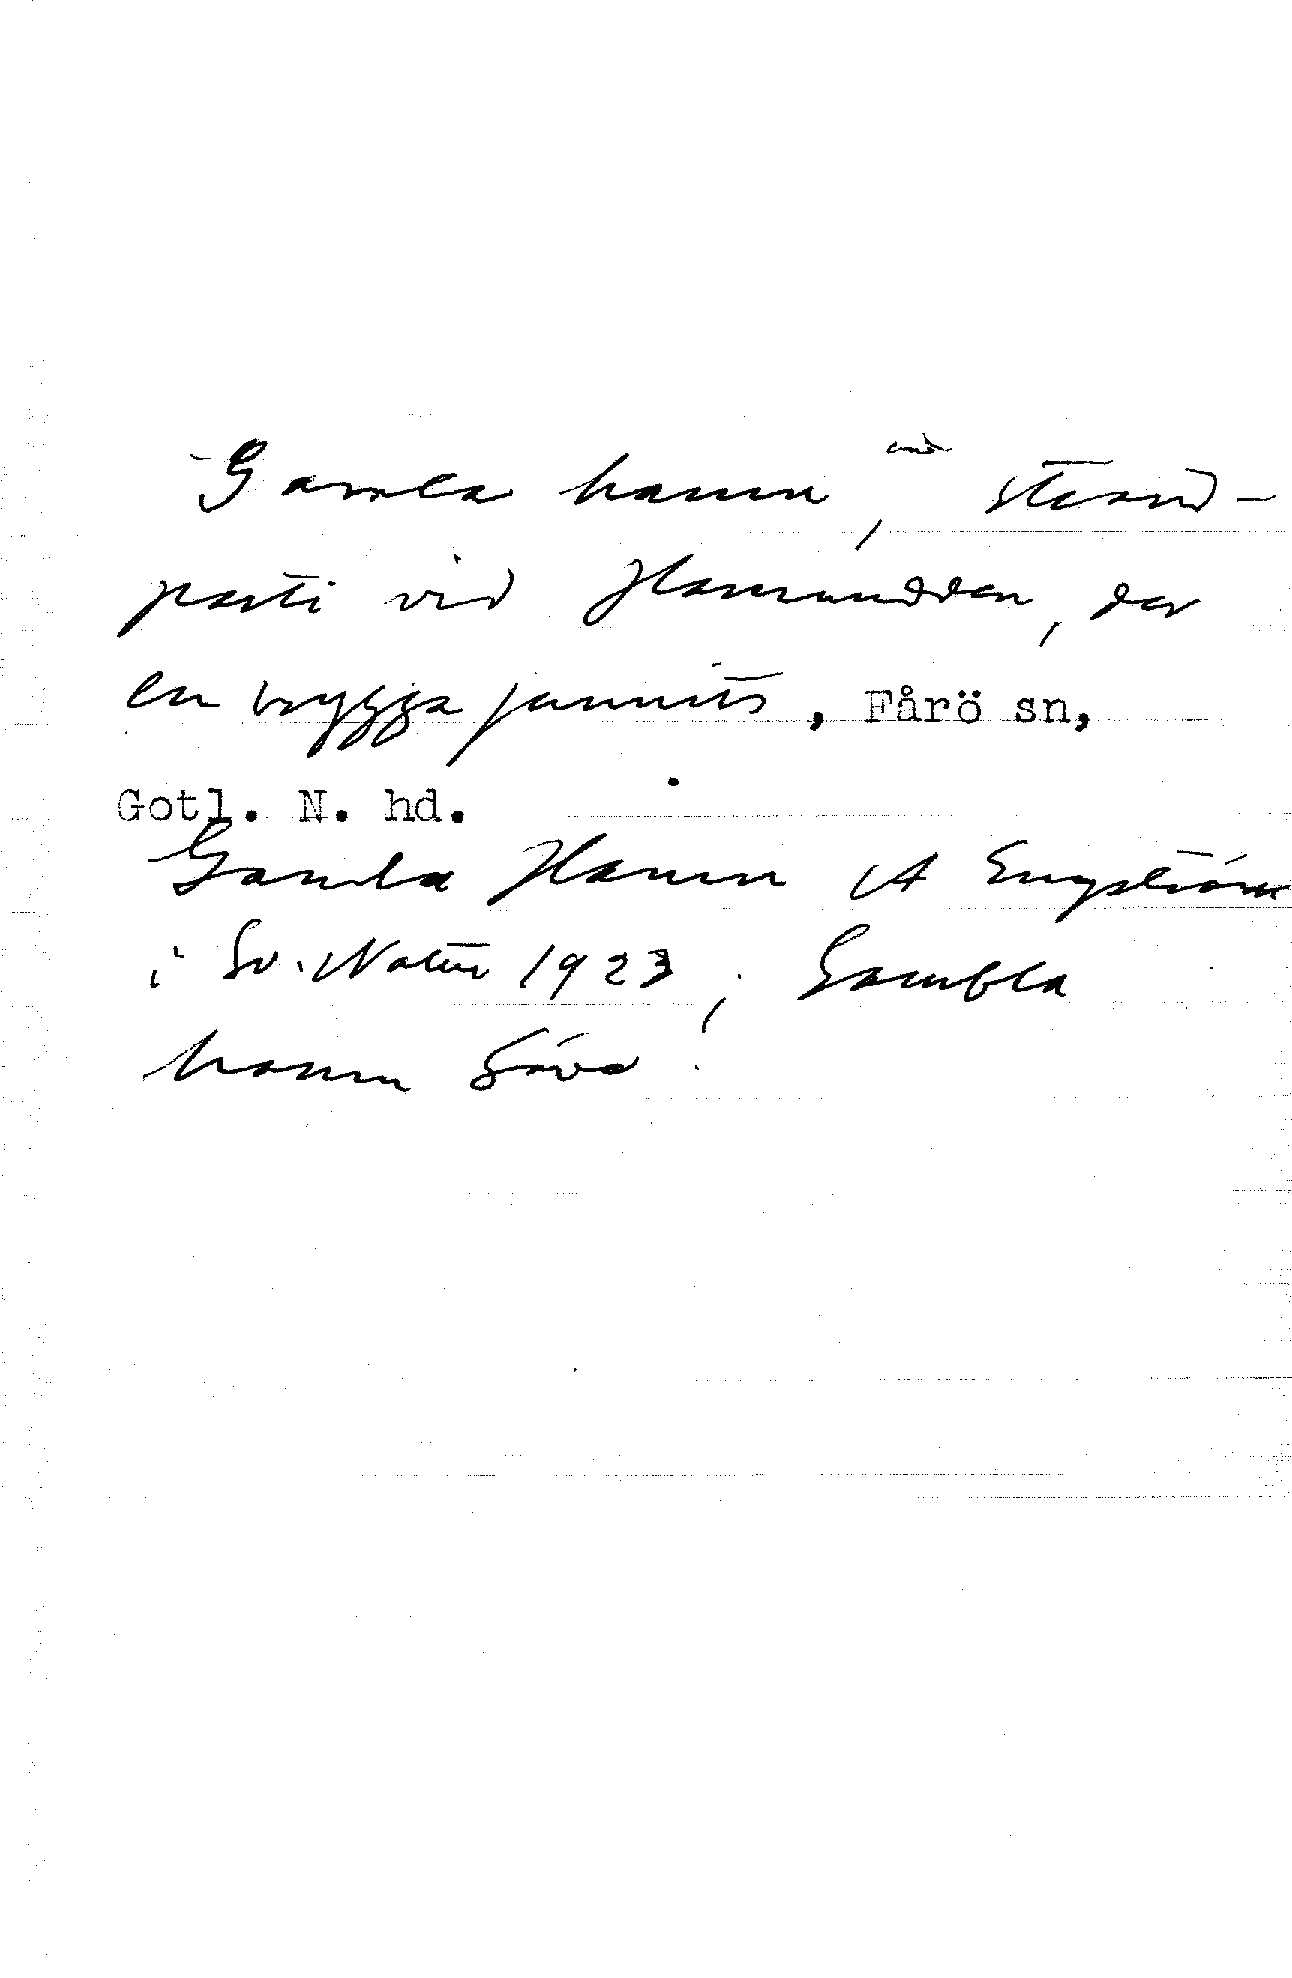 Gamla hamn, strand-
parti vid Hamnudden, där
en brygga funnits, Fårö sn,
Gotl. N. hd.
Gamla Hamn A Engström
i Sv. Natur 1923; Gambla
hamn Säve.